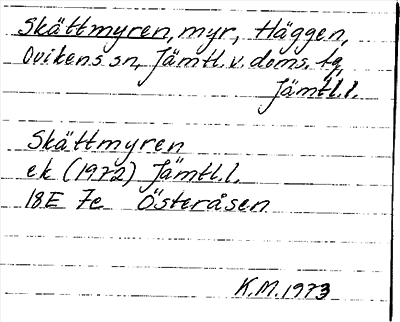 Skättmyren, myr, Häggen,
Ovikens sn, Jämtl. v. doms. tg,
Jämtl.l.
Skättmyren
ek (1972) Jämtl.l.
18E 7e Österåsen
K.M. 1973